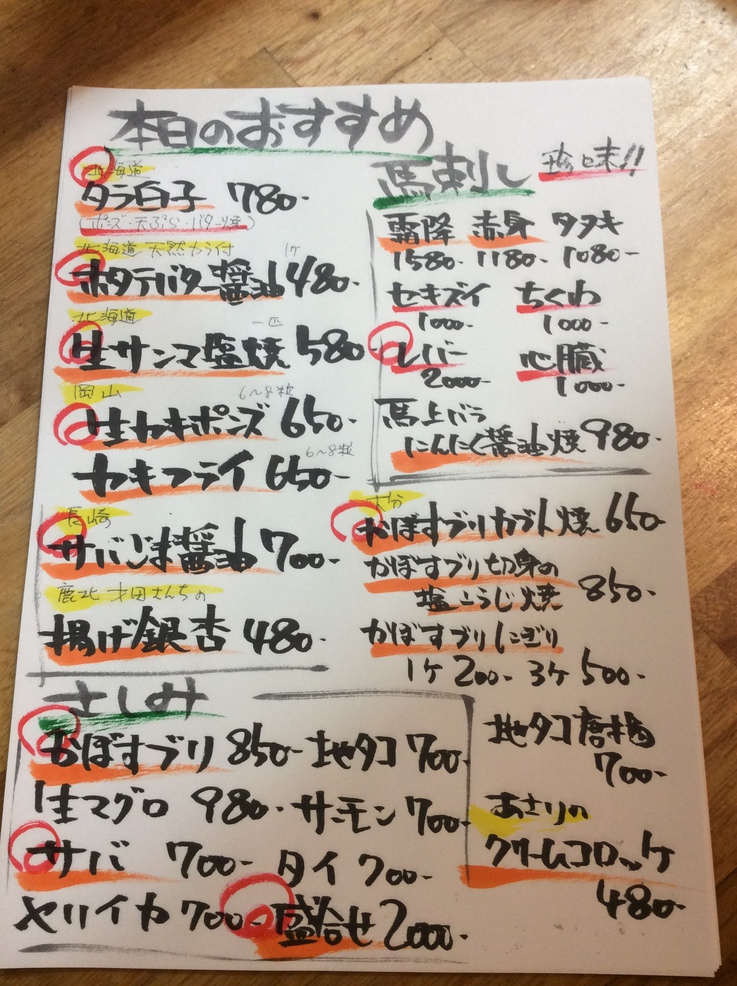 本日のおすすめ
北海道
タラ白子 780-
(ポン酢・天ぷら・バター焼)
北海道 天然カラ付 1ケ
ホタテバター醤油 480-
北海道 一匹
生サンマ塩焼 580
岡山 6〜8粒
生カキポンズ 650-
6〜8粒
カキフライ 650-
長崎
サバごま醤油 700-
鹿北 才田さんちの
揚げ銀杏 480-
馬刺し 珍味!!
霜降 赤身 タヌキ
1580- 1180- 1080-
セキズイ ちくわ
1000- 1000-
レバー 心臓
2000- 1000-
馬上バラ
にんにく醤油焼 980-
大分
かぼすブリカブト焼 650
かぼすブリ切身の
塩こうじ焼 850-
かぼすブリにぎり
1ケ 200- 3ケ 500-
さしみ
かぼすブリ 850- 地タコ 700-
生マグロ 980- サーモン 700-
サバ 700- タイ 700-
ヤリイカ 700- 盛合せ 2000-
地タコ唐揚
700-
あさりの
クリームコロッケ
480-